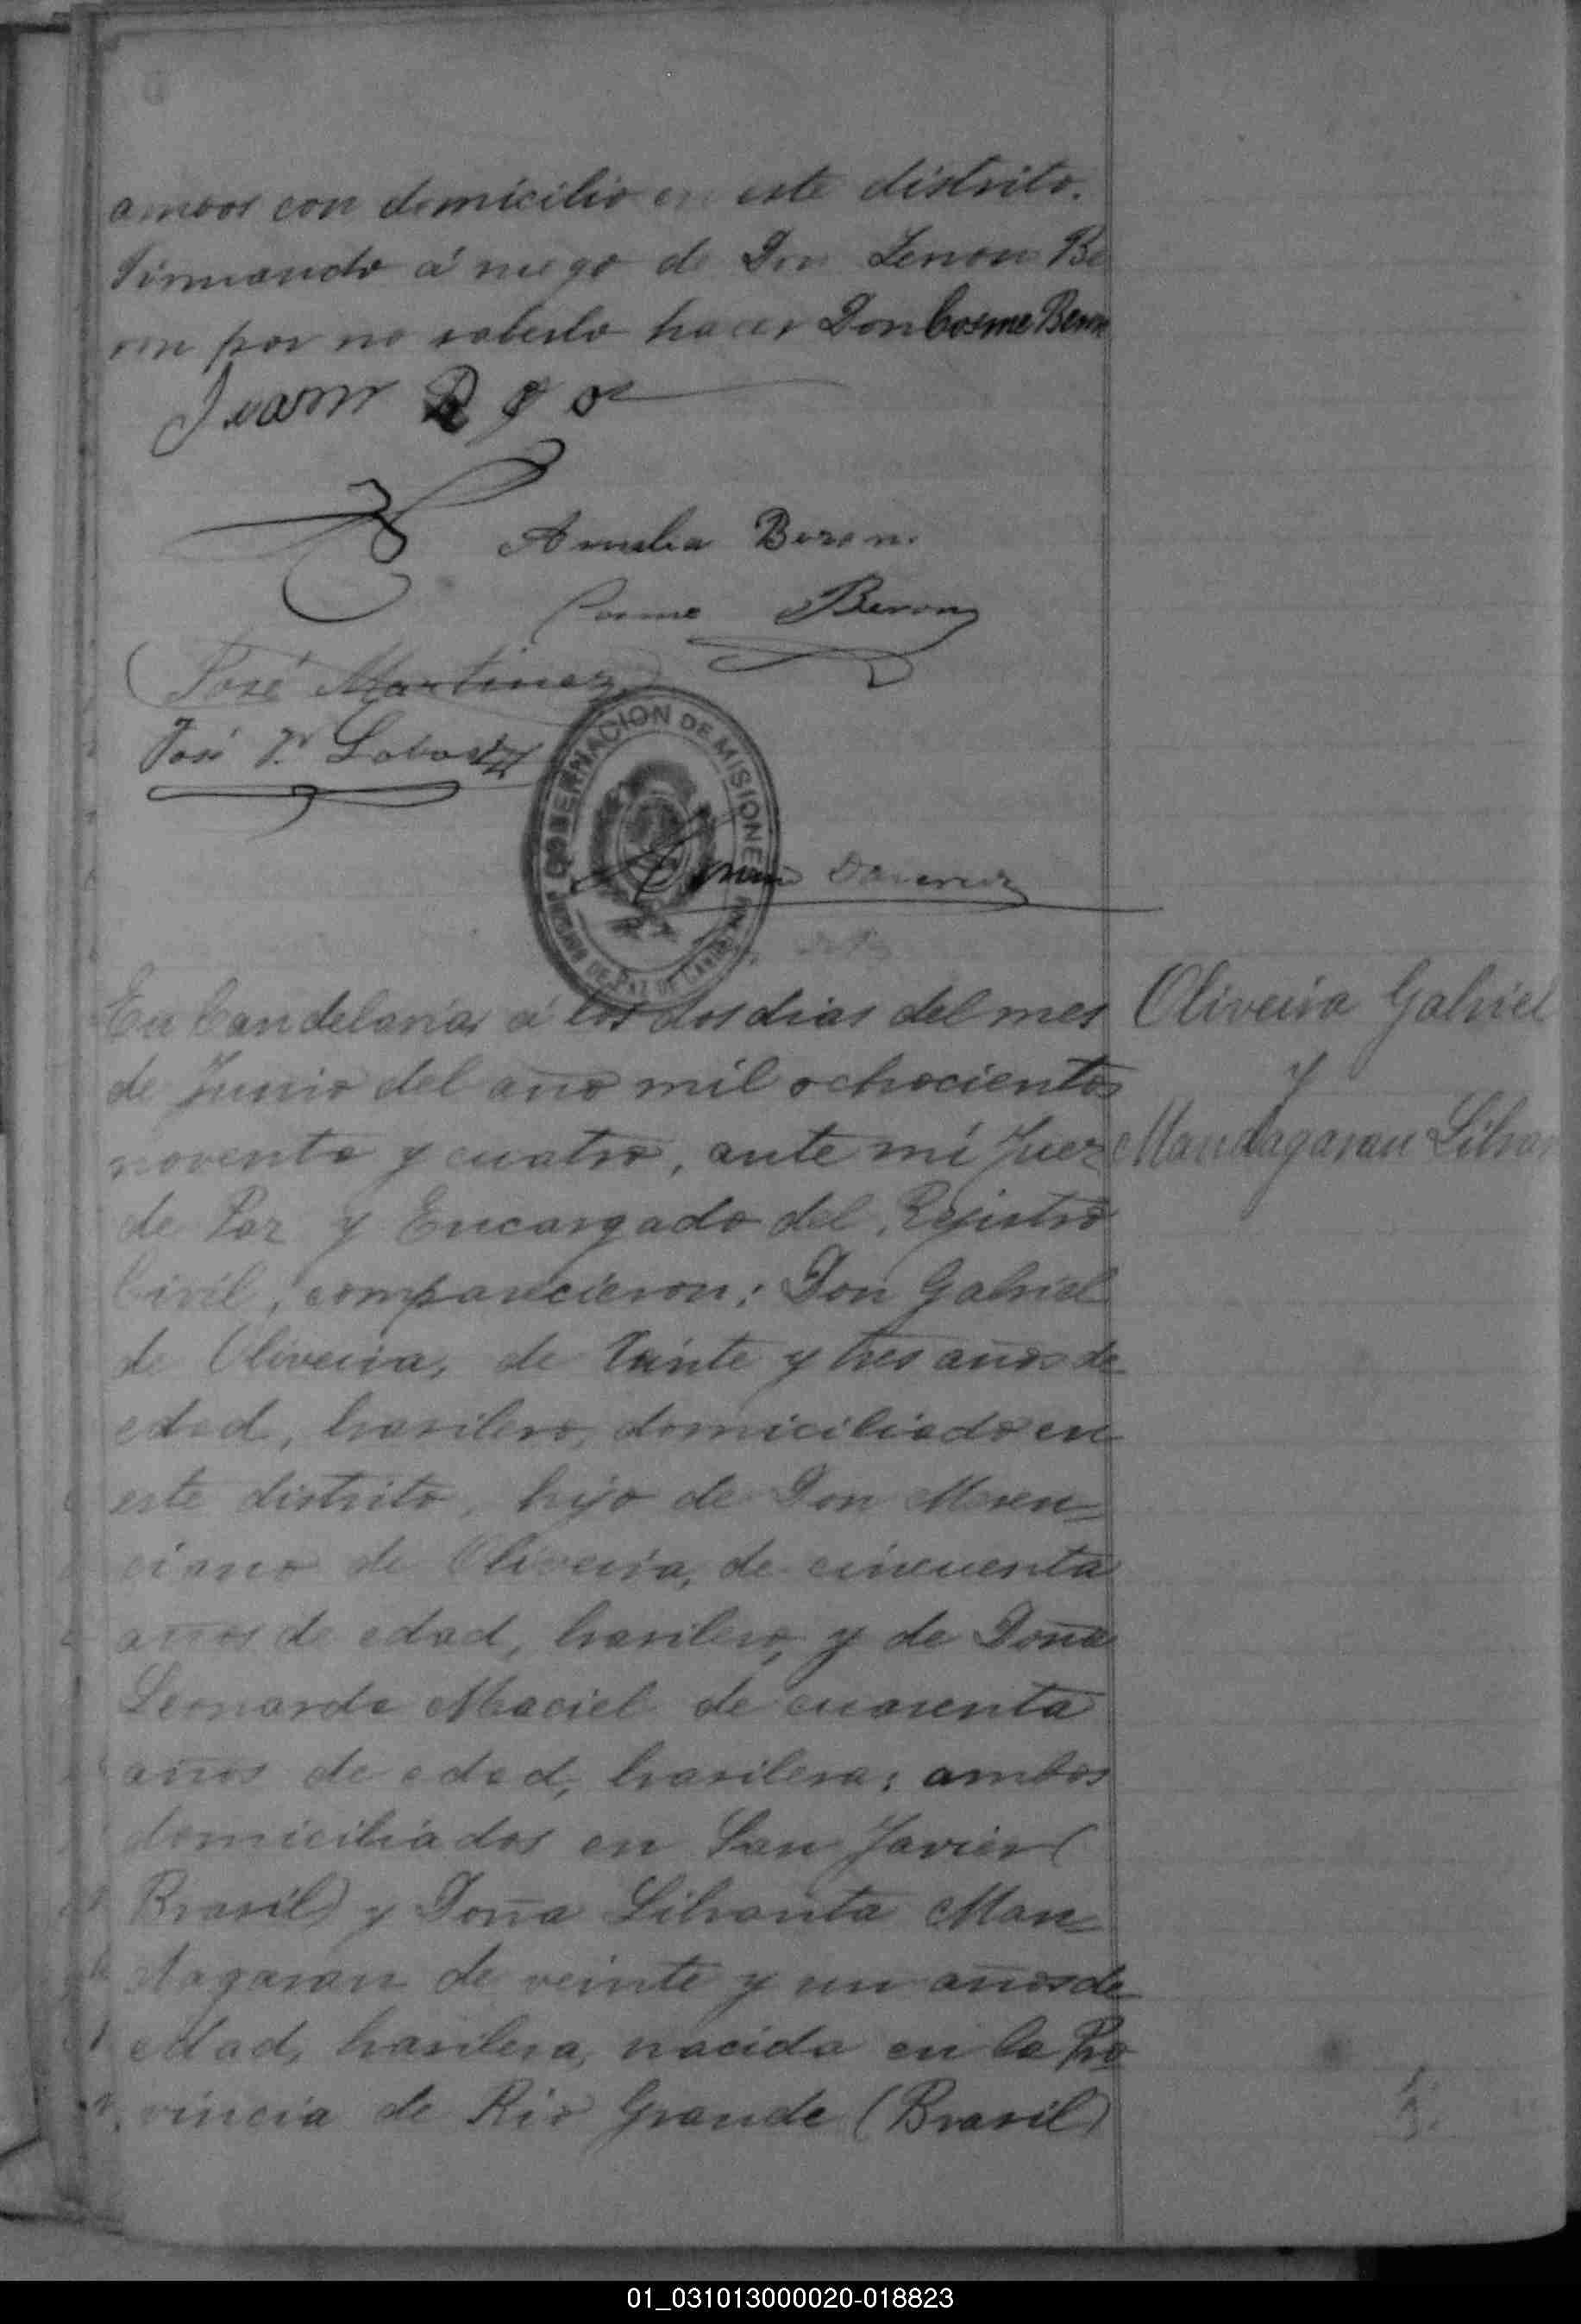 ambos con domicilio en este distrito.
Firmando á ruego de Don Zenon Be
ron por no saberlo hacer Don Cosme Beron
Juan
Amelia Beron.
Cosme Beron
José Martinez
José
GOBERNACION DE MISIONES
JUZGADO DE PAZ DE CANDELARIA
En Candelaria, á los dos dias del mes
de Junio del año mil ochocientos
noventa y cuatro, ante mí Juez
de Paz y Encargado del Rejistro
Civil, comparecieron: Don Gabriel
de Oliveira, de Veinte y tres años de
edad, brasilero, domiciliado en
este distrito, hijo de Don Meren=
ciano de Oliveira, de cincuenta
años de edad, brasilero, y de Doña
Leonarda Maciel de cuarenta
años de edad, brasilera; ambos
domiciliados en San Javier (
Brasil) y Doña Libranta Man=
dagaran de veinte y un años de
edad, brasilera, nacida en la Pro
vincia de Rio Grande (Brasil)
Oliveira Gabriel
y
Mandagaran Libran
01_031013000020-018823